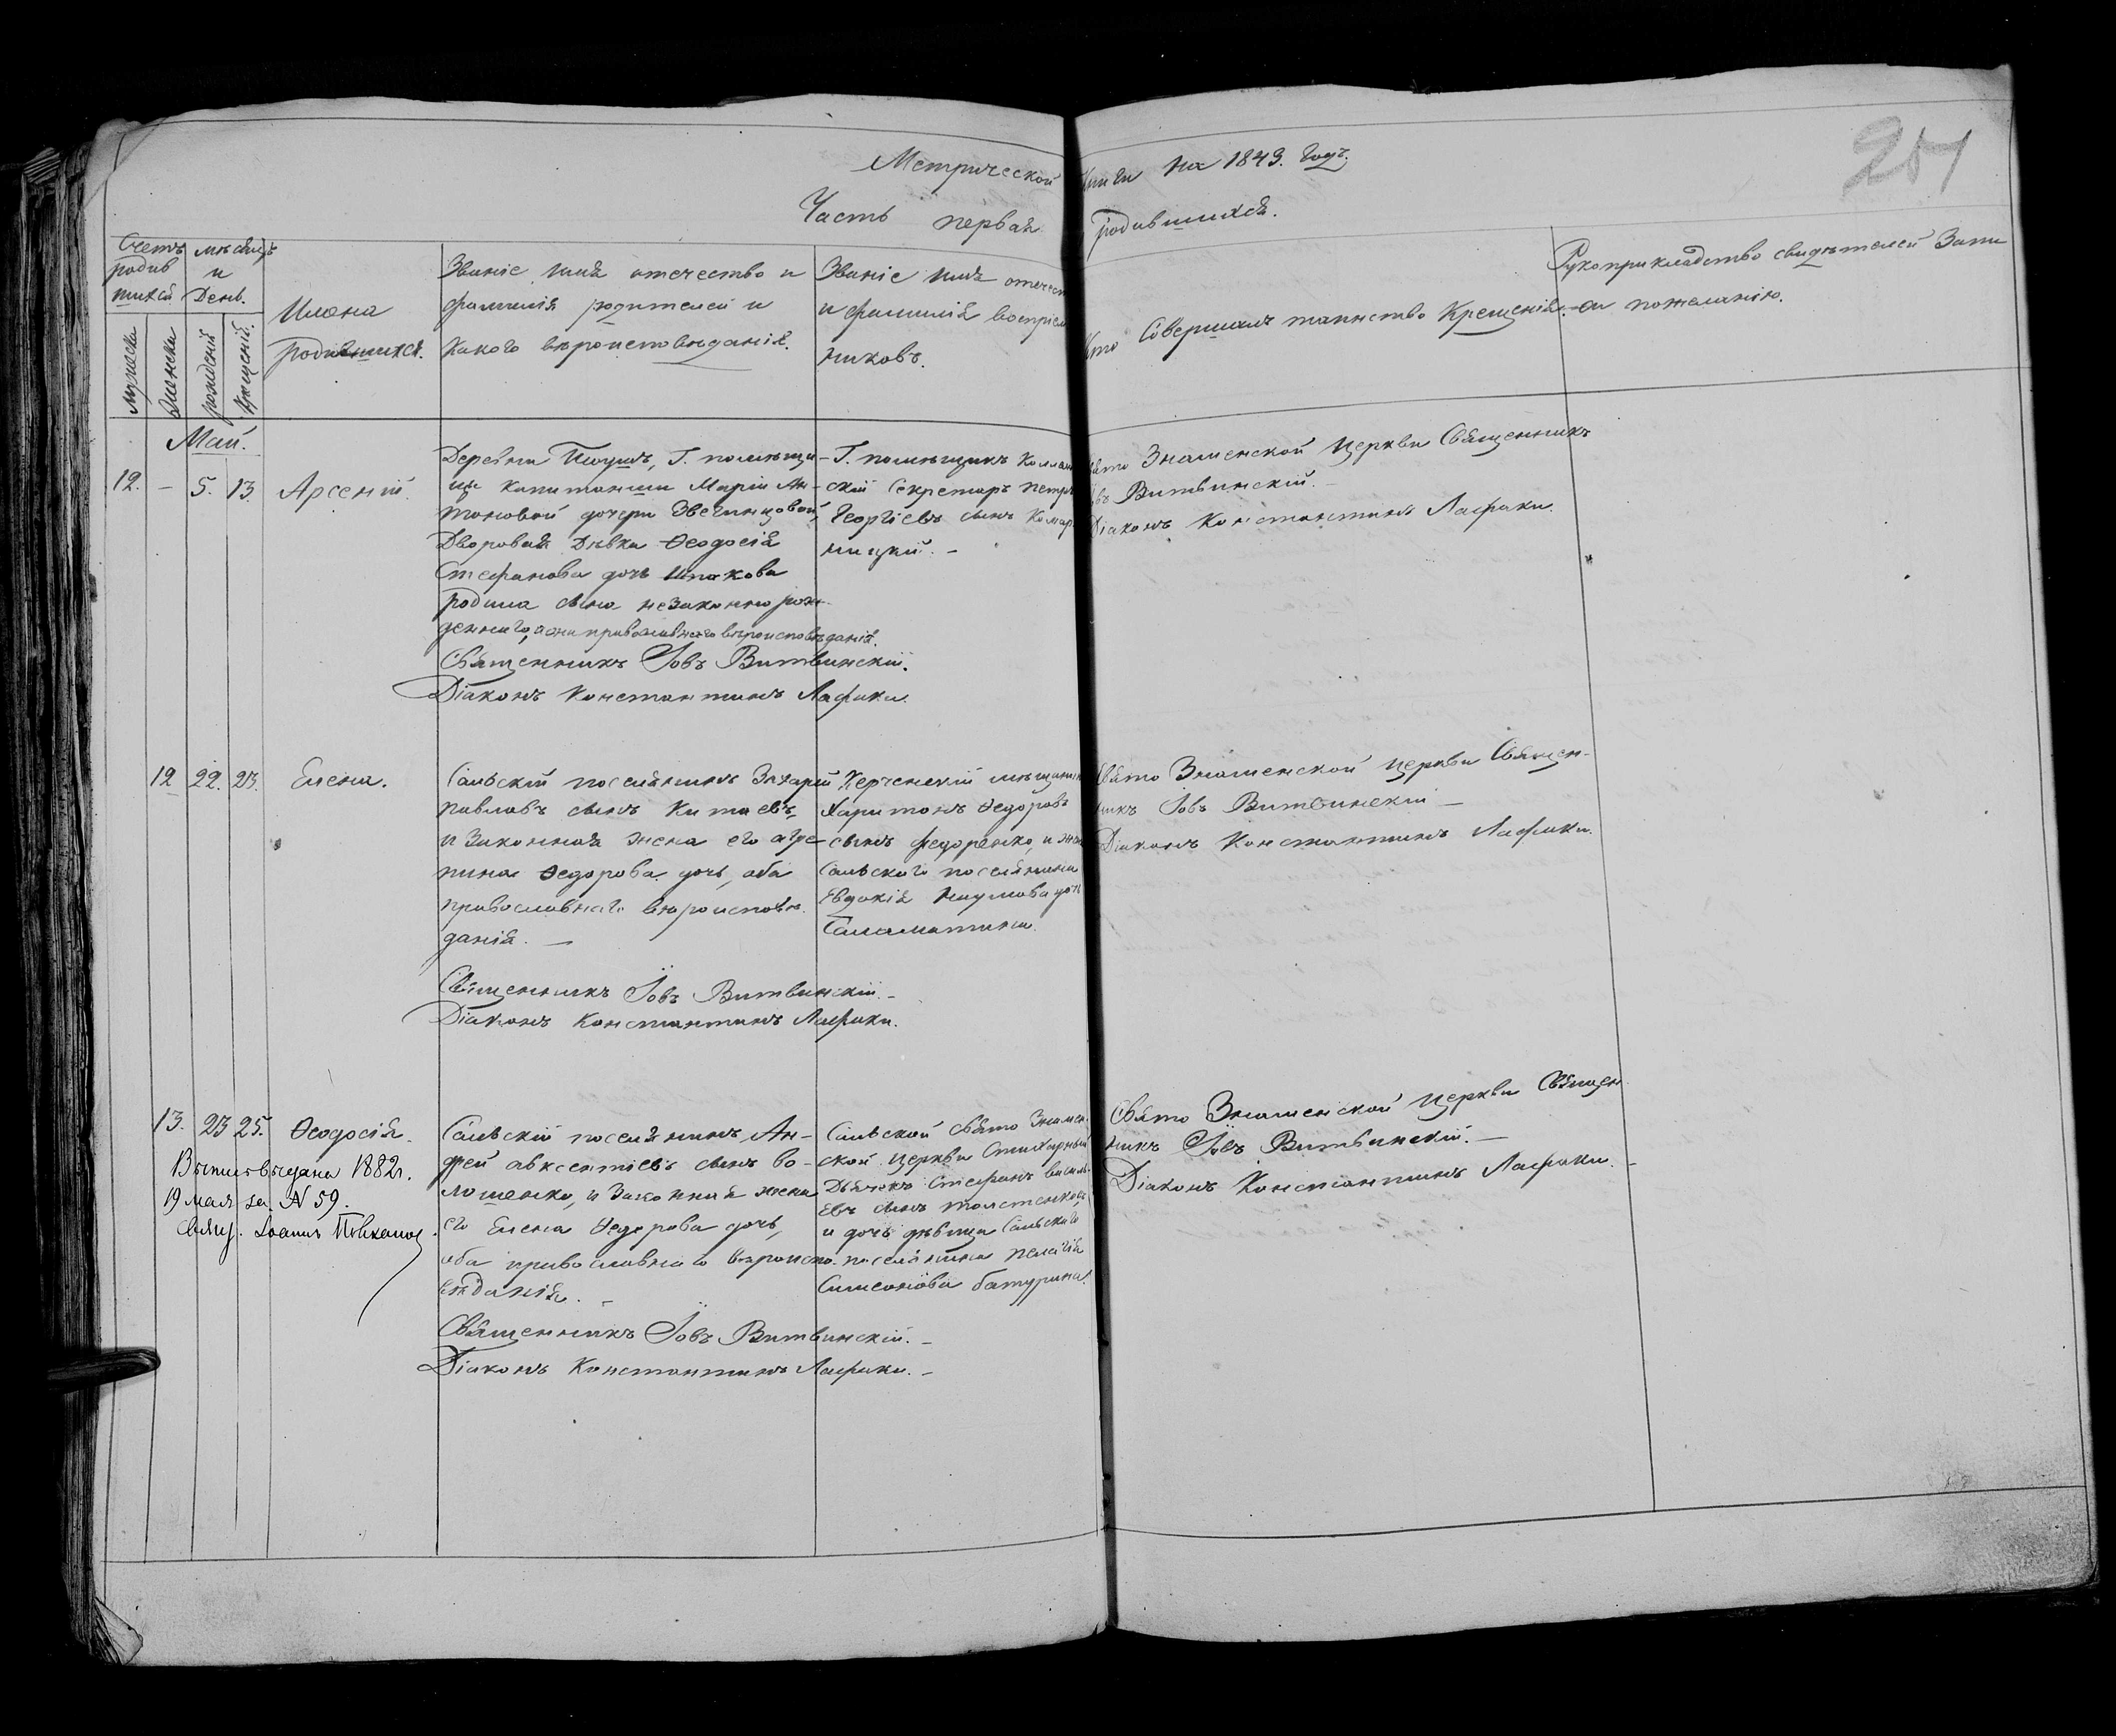 Метрической книги на 1849. годъ.
251
Часть первая родившихся.
Счетъ родив шихся
мужеска
женска
мѣсяцъ и День.
рожденія
крещенія.
Имена родившихся.
Званіе имя отечество и
фамилія родителей и
какого вѣроисповѣданія.
Званіе имя отечест
и фамилія воспріем
никовъ.
Кто Совершалъ таинство Крещенія.
Рукоприкладство свидѣтелей Запи
си пожеланію.
Май.
12. – 5. 13. Арсеній.
Деревни, Г. помѣщи-
цы капитанши Маріи Ан-
тоновой дочери Звегинцовой,
Дворовая Дѣвка Ѳеодосія
Стефанова дочь
родила сына незаконно рож-
деннаго, православнаго вѣроисповѣданія.
Священникъ Іовъ Витвинскій.
Діаконъ Константинъ Лафаки.
Г. помѣщикъ Коллеж
скій Секретарь петръ
Георгіевъ сынъ Комар
ницкій. –
Свято Знаменской церкви Священникъ
Іовъ Витвинскій. –
Діаконъ Константинъ Лафаки.
12 22. 23. Елена.
Сальскій поселянинъ Захарій
павловъ сынъ Китаевъ,
и Законная жена его агре
пина Ѳедорова дочь, оба
православнаго вѣроисповѣ
данія. –
Священникъ Іовъ Витвинскій. –
Діаконъ Константинъ Лафаки.
Керченскій мѣщанин
Харитонъ Ѳедоровъ
сынъ федоренко, и жен
Сальского поселянина
Евдокія Наумова доч
Саламатина.
Свято Знаменской церкви Священ-
никъ Іовъ Витвинскій –
Діаконъ Константинъ Лафаки.
13. 23 25. Ѳеодосія.
Выпись выдана 1882 г.
19 мая за N 59.
Свящ. Іоаннъ
Сальскій поселянинъ, Ан-
дрей авксентіевъ сынъ во-
лошенко, и Законная жена
его Елена Ѳедорова дочь,
оба православнаго вѣроиспо
вѣданія. –
Священникъ Іовъ Витвинскій. –
Діаконъ Константинъ Лафаки. –
Сальской Свято Знамен-
ской церкви Стихарный
Дьячекъ Стефанъ василь-
евъ сынъ толстенковъ,
и дочь дѣвица Сальскаго
поселянина пелагія
Симеонова батурина.
Свято Знаменской церкви Священ
никъ Іовъ Витвинскій. –
Діаконъ Константинъ Лафаки. –